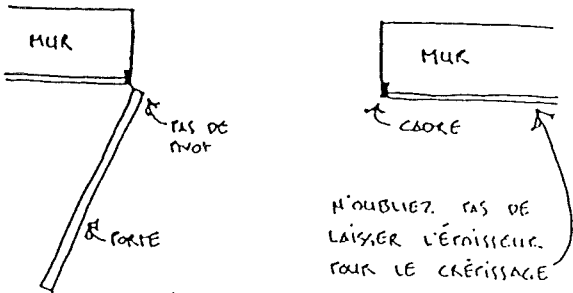 MUR
PAS DE
PIVOT
PORTE
MUR
CADRE
N'OUBLIEZ PAS DE
LAISSER L'ÉPAISSEUR
POUR LE CRÉPISSAGE